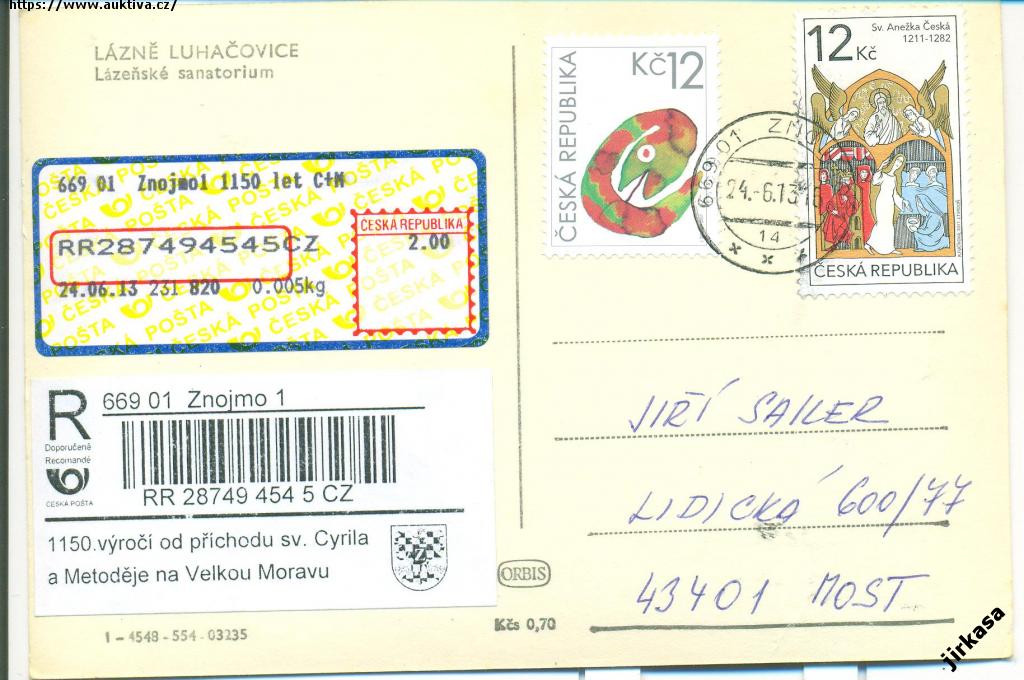 https://www.auktiva.cz/
LÁZNĚ LUHAČOVICE
Lázeňské sanatorium
669 01 Znojmo1 1150 let C+M
RR287494545CZ
24.06.13 231 820 0.005kg
ČESKÁ REPUBLIKA
2.00
ČESKÁ POŠTA
R
Doporučeně
Recomandé
ČESKÁ POŠTA
669 01 Znojmo 1
RR 28749 454 5 CZ
1150.výročí od příchodu sv. Cyrila
a Metoděje na Velkou Moravu
1-4548-554-03235
ORBIS
Kčs 0,70
Kč 12
ČESKÁ REPUBLIKA
669 01 ZNO
24.-6.13
14
12 Kč
Sv. Anežka Česká
1211-1282
ČESKÁ REPUBLIKA
JIŘÍ SAILER
LIDICKÁ 600/77
43401 MOST
jirkasa